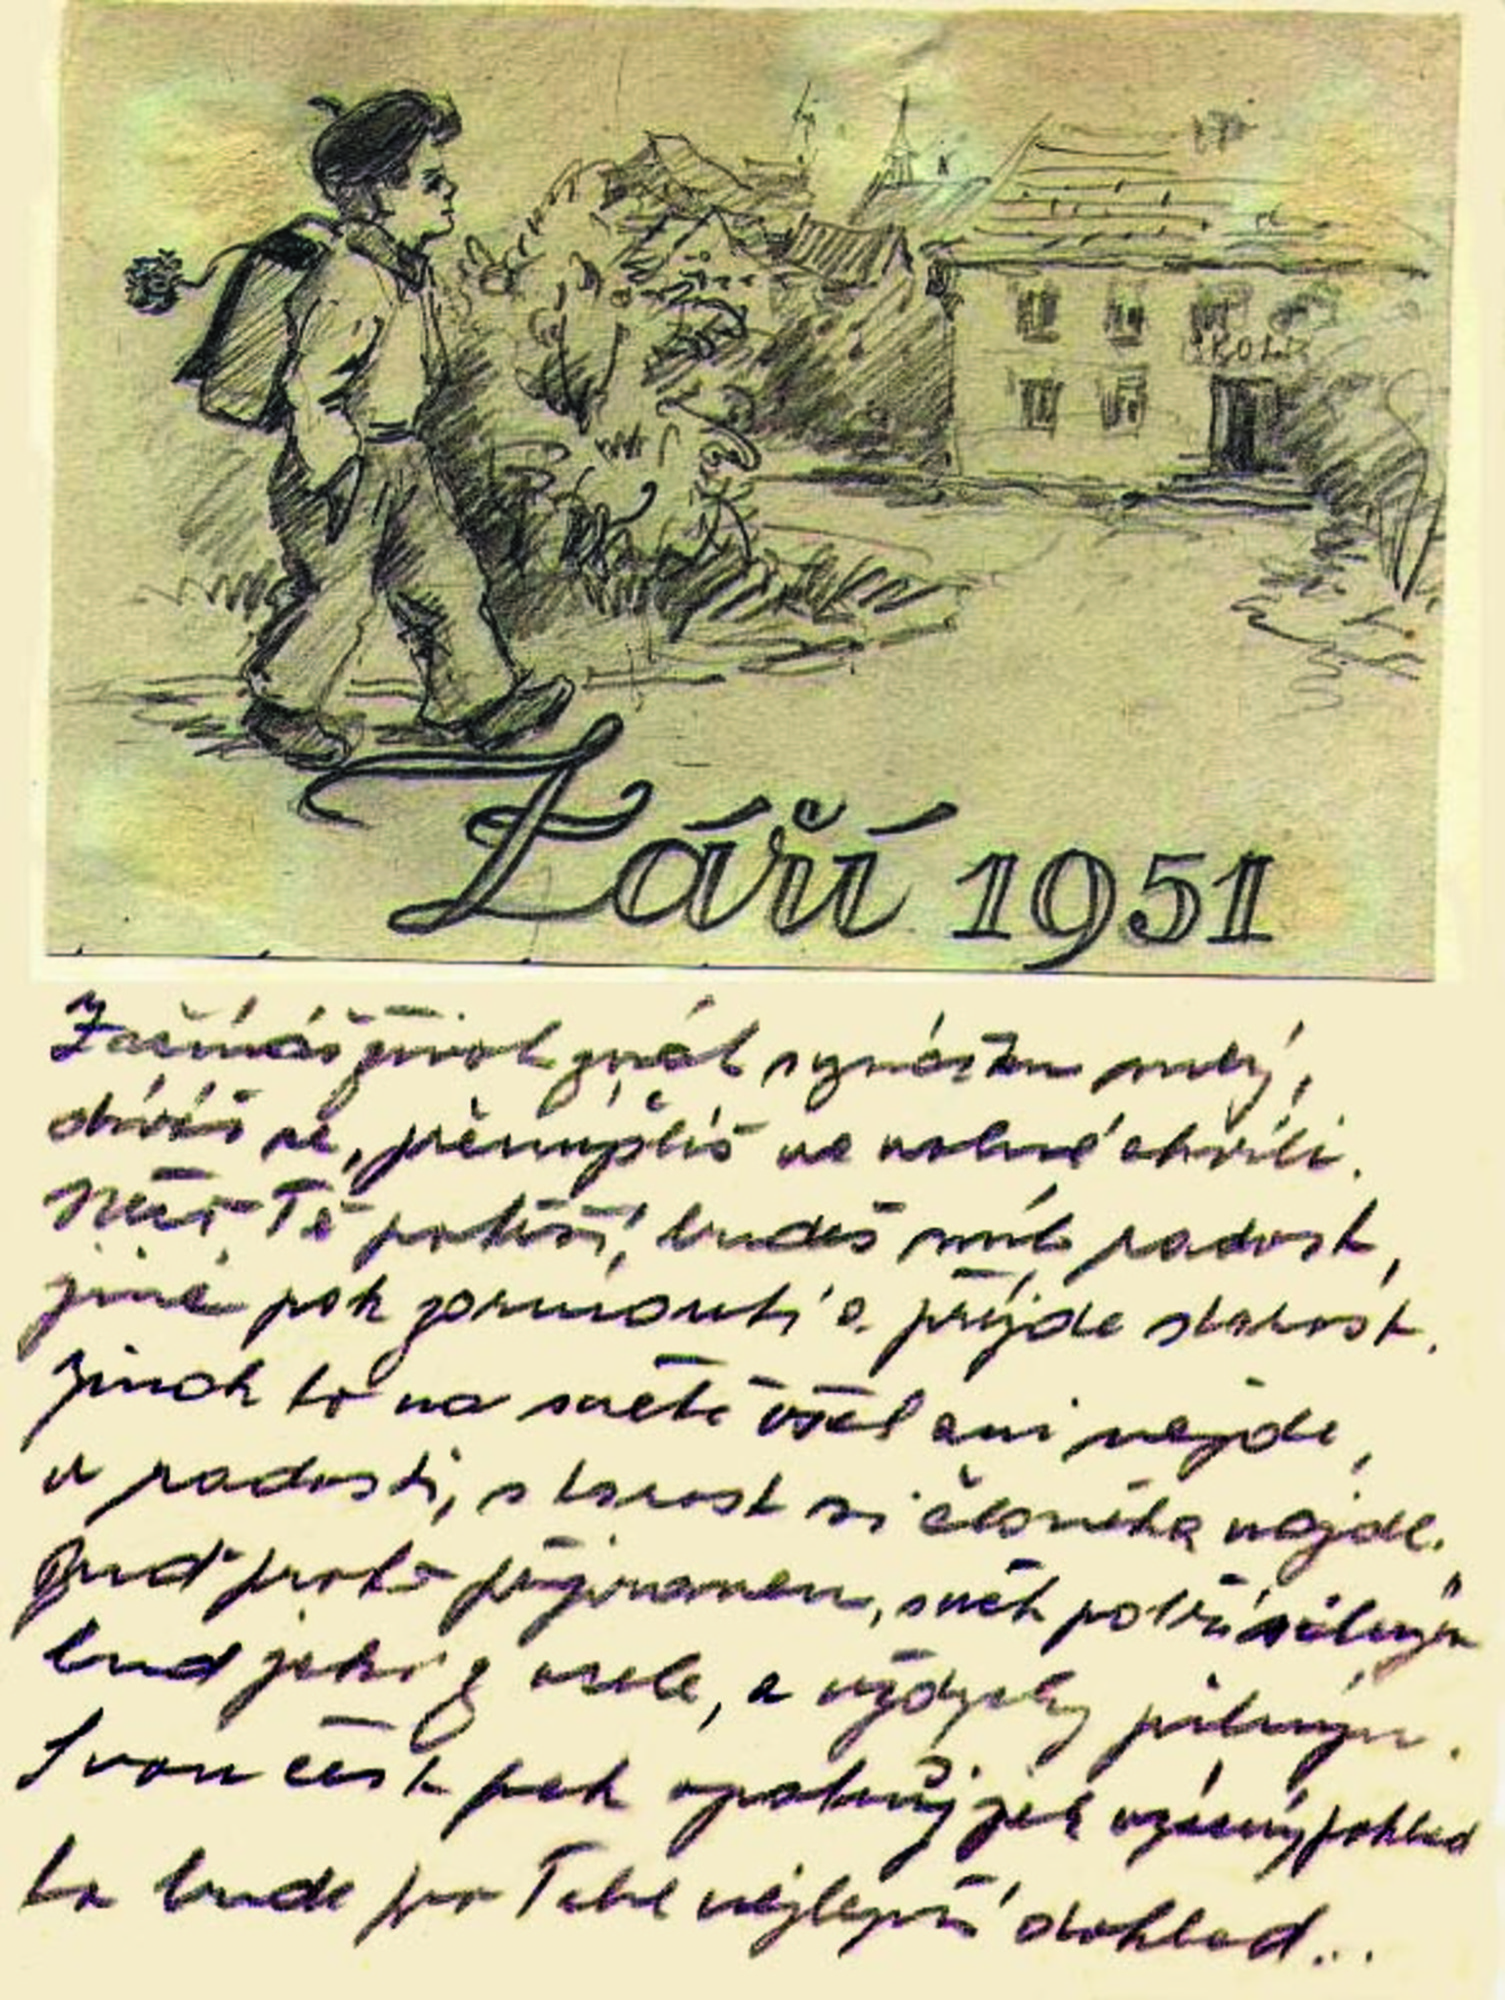 ŠKOLA
Září 1951
Začínáš život znát synáčku milý,
díváš se, přemýšlíš ve volné chvíli.
Něco Tě potěší, budeš mít radost,
jiné pak zarmoutí a přijde starost.
Jinak to na světě všel ani nejde,
v radosti, starost si člověka najde.
Buď proto připraven, svět potřá silným
buď jako z ocele, a vždycky pilným.
Svou čest pak opatruj jak vzácný poklad
to bude pro Tebe nejlepší doklad...